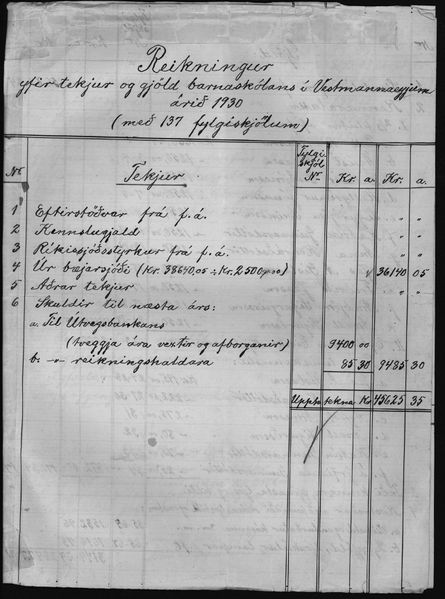 Reikningur
yfir tekjur og gjöld barnaskólans í Vestmannaeyjum
árið 1930
(með 137 fylgiskjölum)
No. Tekjur Fylgi-skjöl No. Kr. a. Kr. a.
1 Eftirstöðvar frá f.á. " "
2 Kennslugjald " "
3 Ríkissjóðsstyrkur frá f.á. " "
4 Úr bæjarsjóði (kr. 38640,05 ÷ kr. 2500,00) 36140 05
5 Aðrar tekjur " "
6 Skuldir til næsta árs:
a. Til Útvegsbankans
(tveggja ára vextir og afborganir) 9400 00
b. -"- reikningshaldara 85 30 9485 30
Upphæð tekna Kr. 45625 35